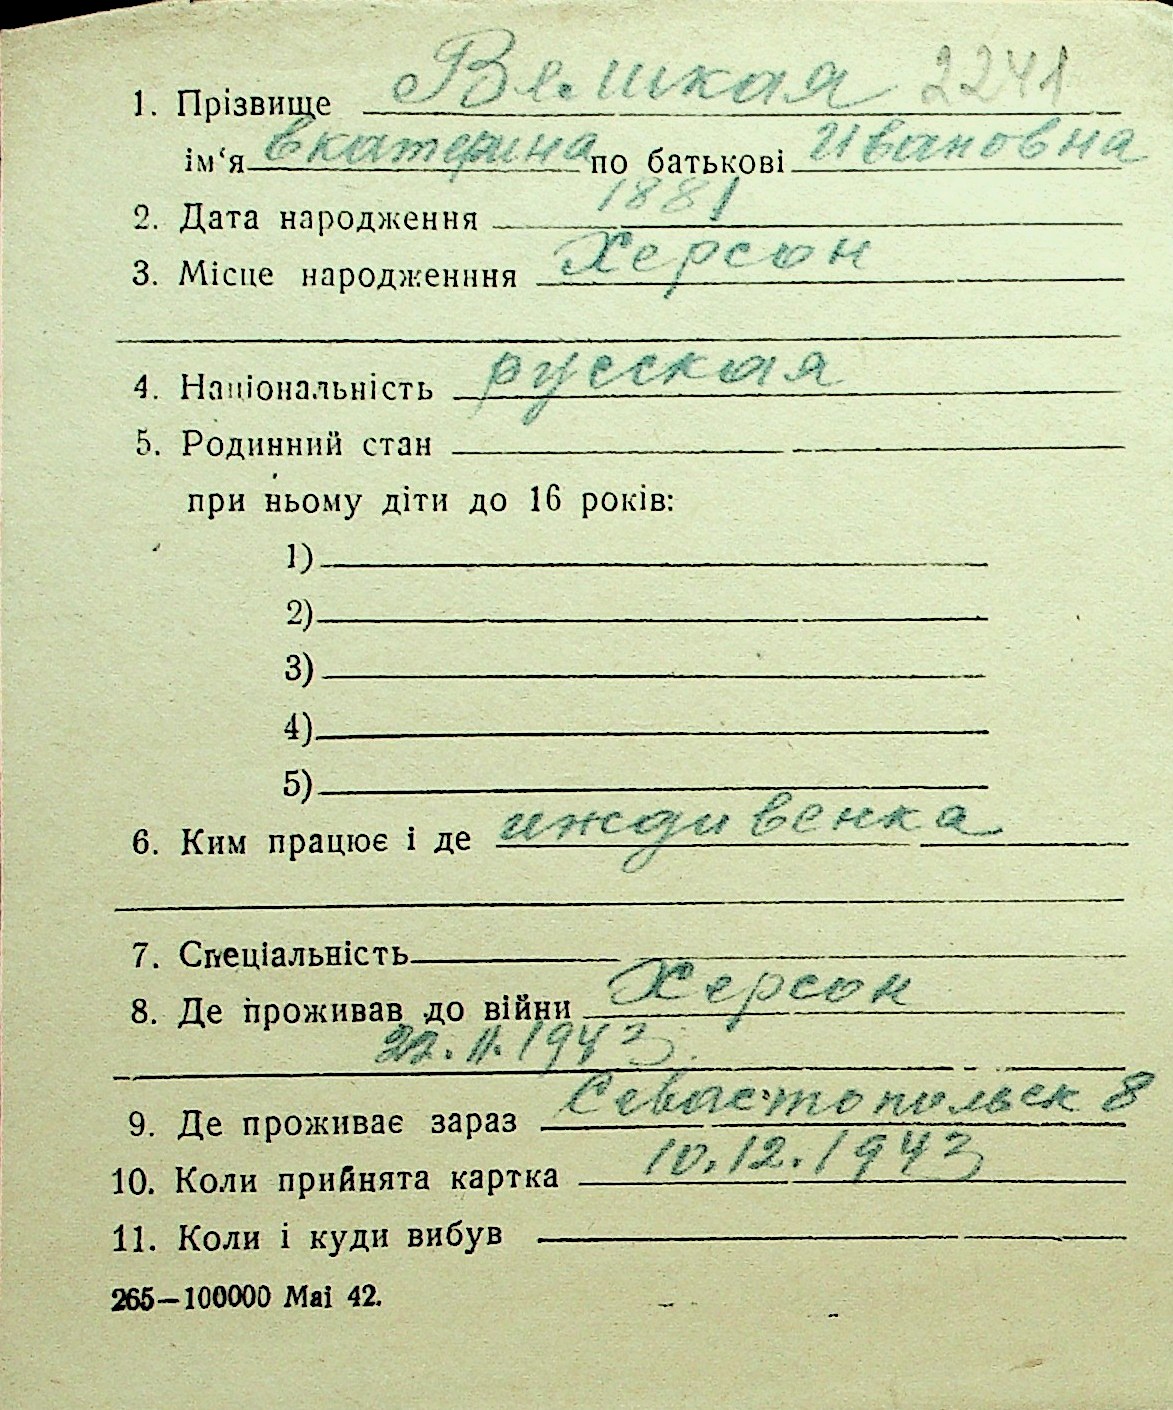 1. Прізвище Великая 2241
ім‘я Екатерина по батькові Ивановна
2. Дата народження 1881
3. Місце народженння Херсон
4. Національність русская
5. Родинний стан
при ньому діти до 16 років:
1)
2)
3)
4)
5)
6. Ким працює і де иждивенка
7. Спеціальність
8. Де проживав до війни Херсон
22.11.1943
9. Де проживає зараз Севастопольск 8
10. Коли прийнята картка 10.12.1943
11. Коли і куди вибув
265—100000 Mai 42.